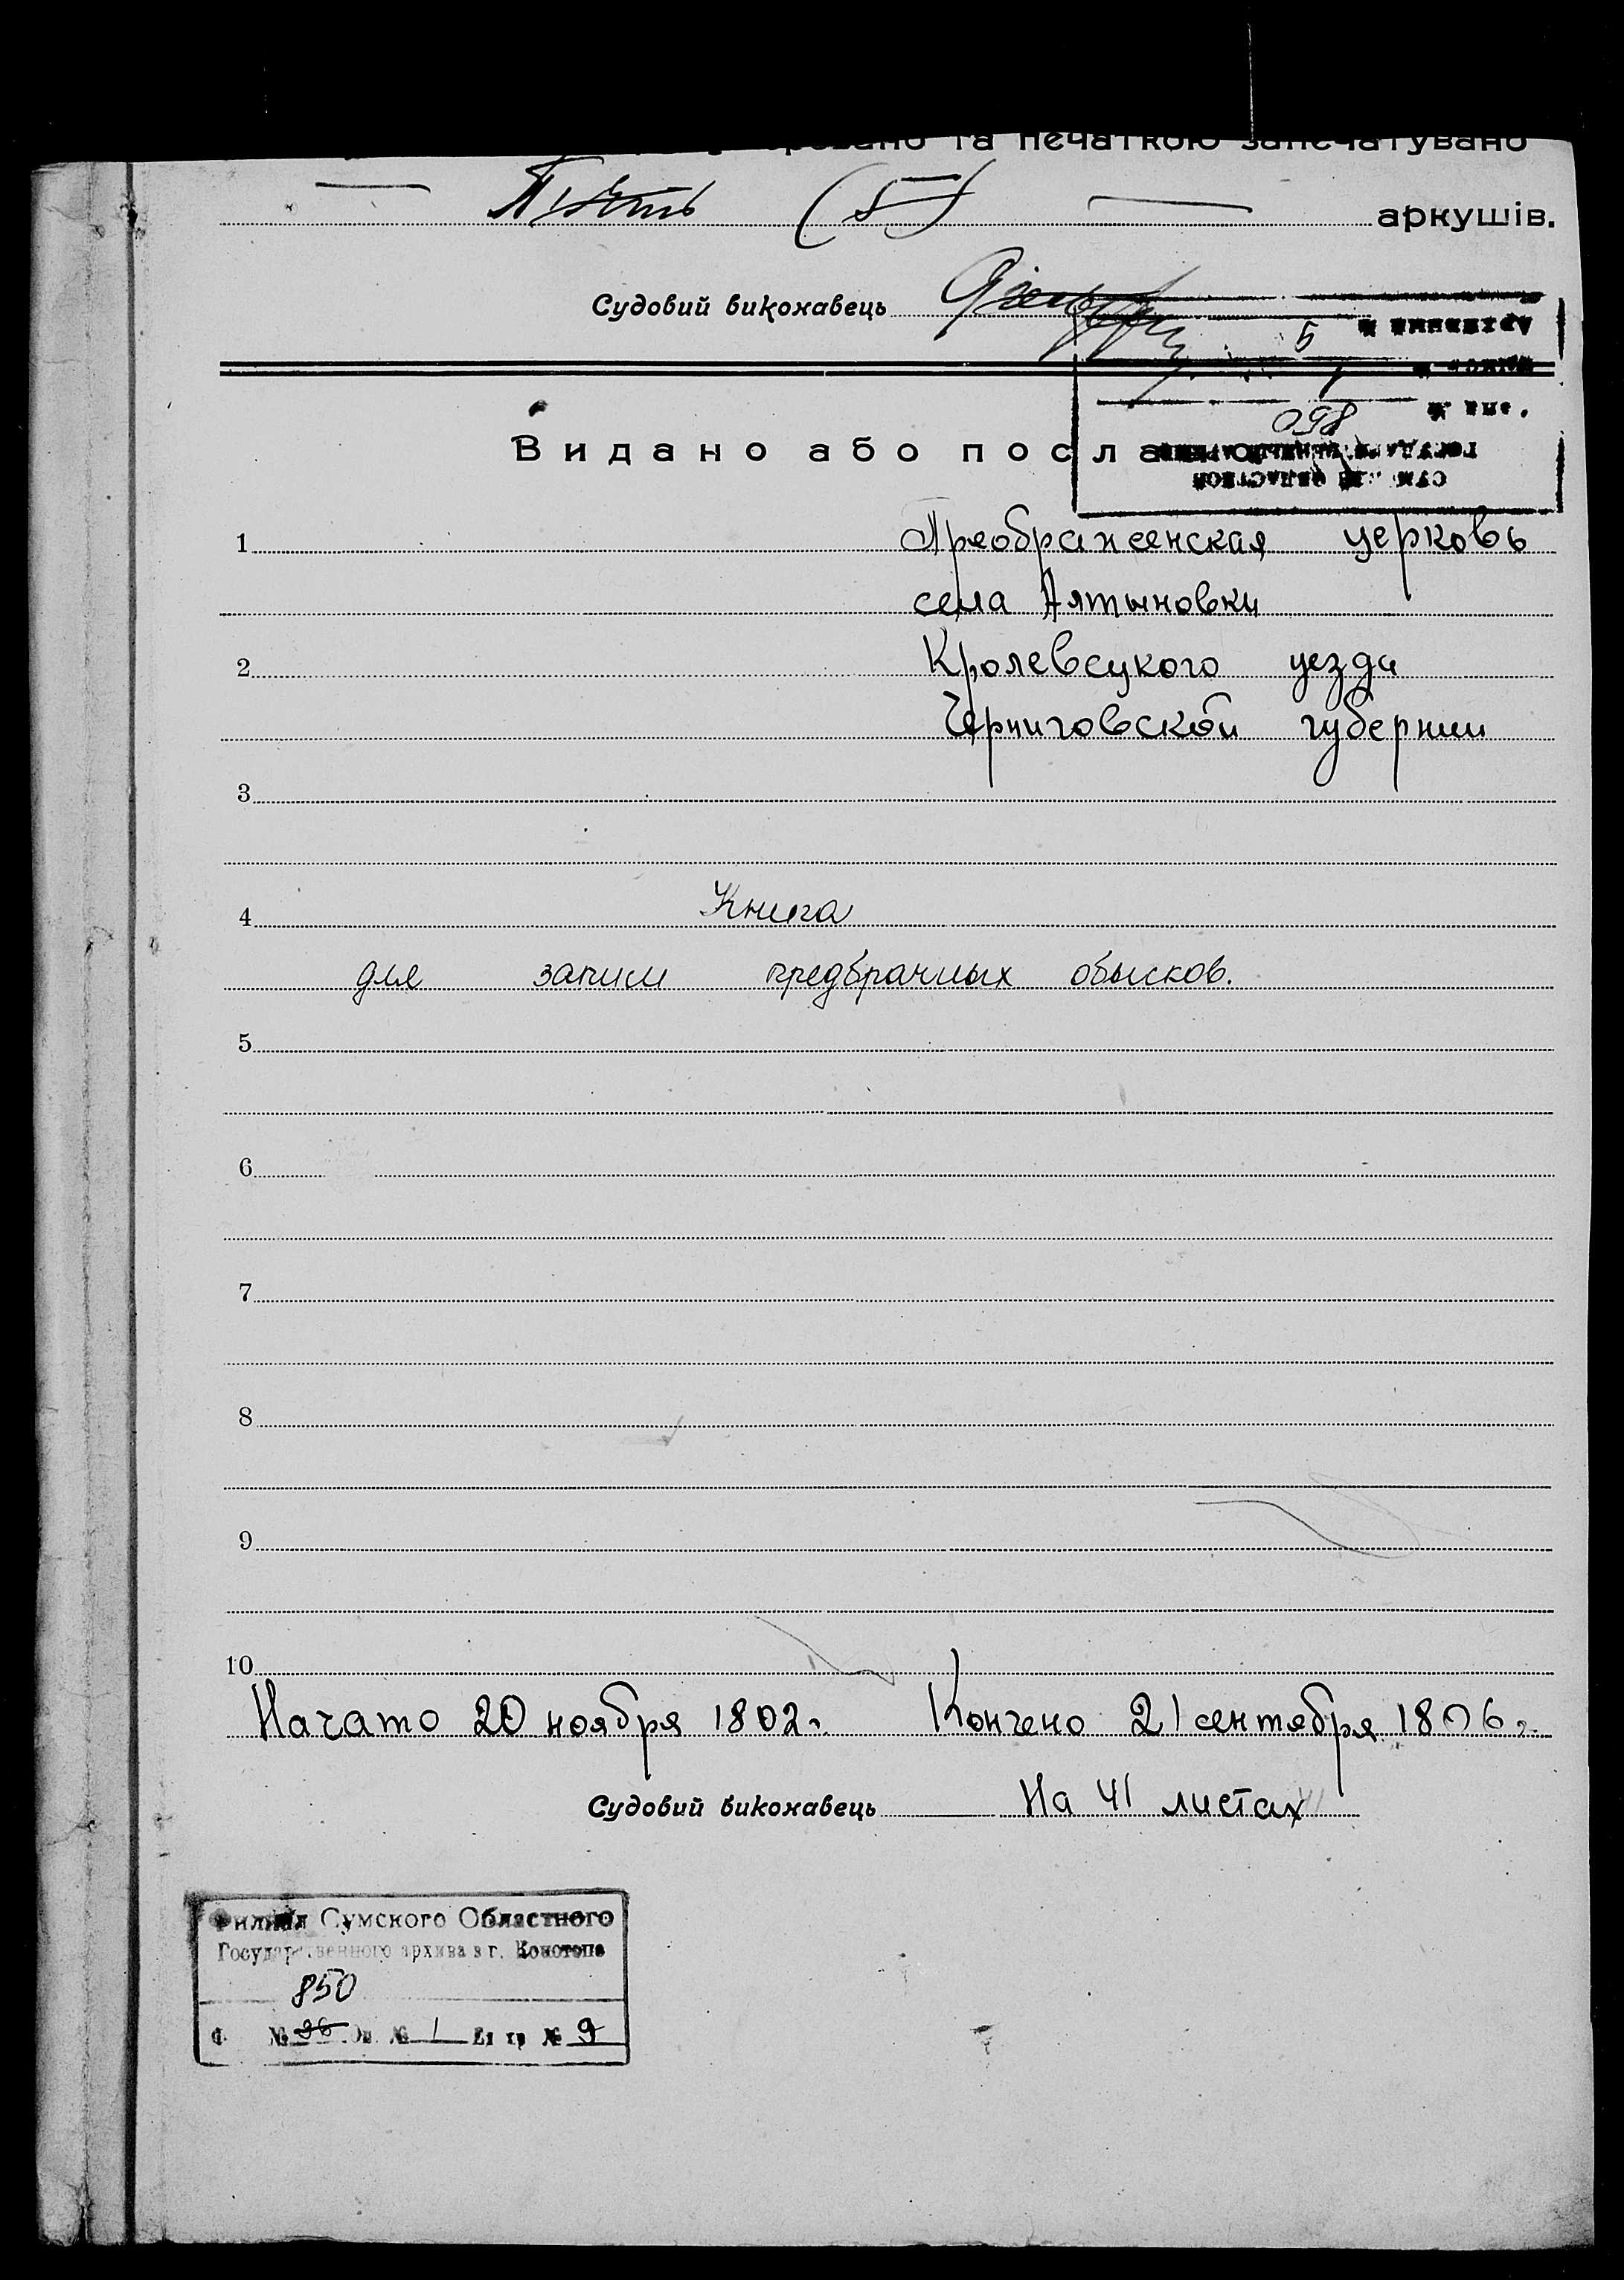 та печаткою запечатувано
(5) аркушів.
Судовий виконавець
Видано або послано
1 Преображенская церковь
села Алтыновки
2 Кролевецкого уезда
Черниговской губернии
3
4 Книга
для записи предбрачных обысков.
5
6
7
8
9
10
Начато 20 ноября 1802г. Кончено 21 сентября 1806г.
Судовий виконавець На 41 листах
Филиал Сумского Областного
Государственного архива в г. Конотопе
850
Ф. № 96 Оп. № 1 Ед. хр. № 9